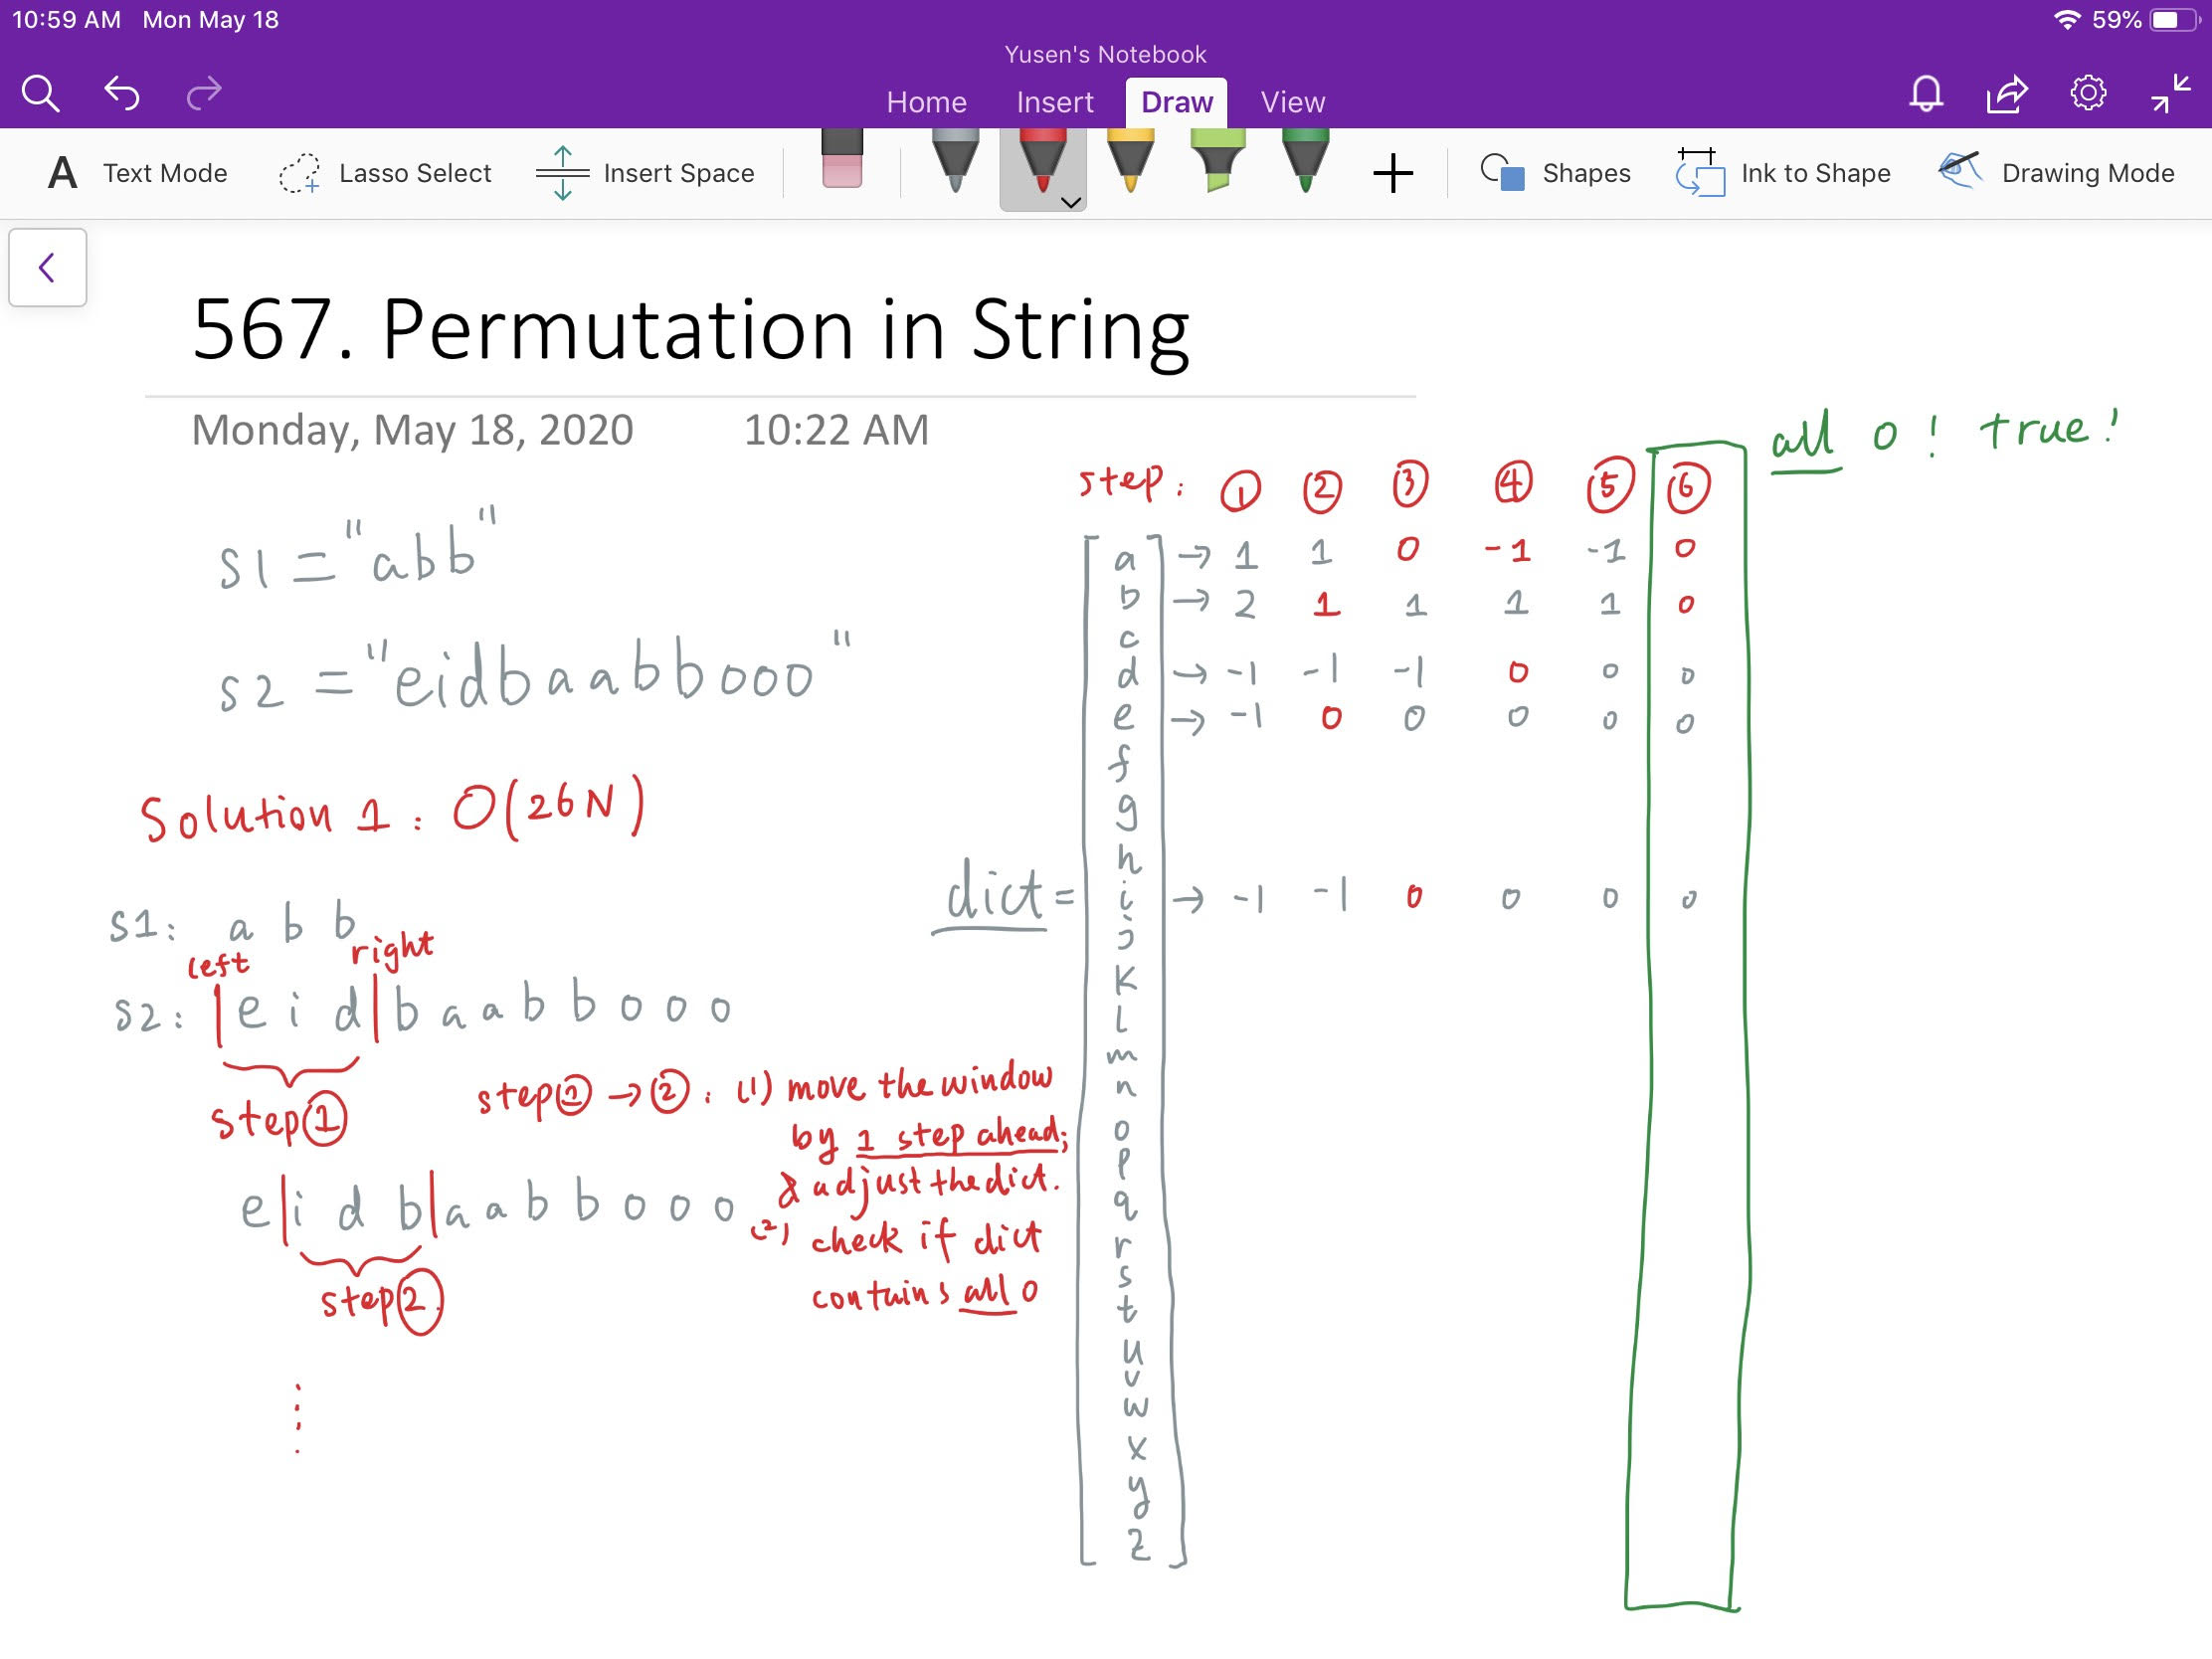 10:59 AM Mon May 18
59%
Yusen's Notebook
Home Insert Draw View
A Text Mode Lasso Select Insert Space Shapes Ink to Shape Drawing Mode
567. Permutation in String
Monday, May 18, 2020 10:22 AM
s1 = "abb"
s2 = "eidbaabbooo"
Solution 1: O(26N)
s1: a b b
left right
s2: |e i d|b a a b b o o o
step①
e|i d b|a a b b o o o
step②
⋮
step① → ②: (1) move the window
by 1 step ahead;
& adjust the dict.
(2) check if dict
contains all 0
all 0! true!
step: ① ② ③ ④ ⑤ ⑥
dict =
a → 1 1 0 -1 -1 0
b → 2 1 1 1 1 0
c
d → -1 -1 -1 0 0 0
e → -1 0 0 0 0 0
f
g
h
i → -1 -1 0 0 0 0
j
k
l
m
n
o
p
q
r
s
t
u
v
w
x
y
z